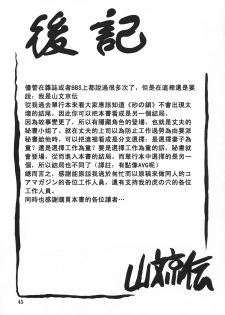 後記
儘管在雜誌或者BBS上都說過很多次了，但是在這裡還是要
說：我是山文京伝
從我過去單行本來看大家應該知道《砂の鎖》不會出現太
壞的結尾，因此你們可以把本書看成是另一個結局。
因為故事變更了，所以有隱藏角色的登場，也就是丈夫的
秘書小姐，就在丈夫的上司以為防止工作過勞為由要派
秘書給他的時候，可以把本書看成是分支選擇：是選擇妻子為
重？還是選擇工作為重？要是選擇工作為重的話，秘書就
會登場，從而進入本書的結局。而單行本中選擇的是另一
個，所以結局也不同了（譯註：有點像AVG呢）
總而言之，感謝能原諒我過於匆忙而以原稿來做同人的コ
アマガジン的各位工作人員，還有支持我的虎の穴的各位
工作人員。
同時也感謝購買本書的各位讀者…
山文京伝
45